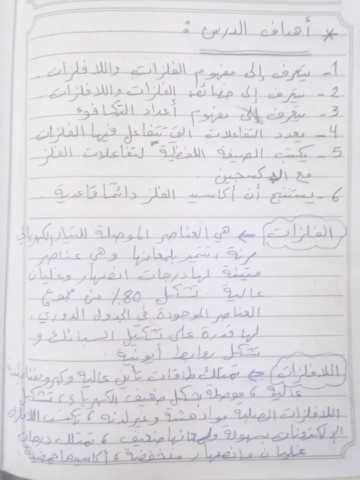 * أهداف الدرس :
1- يتعرف إلى مفهوم الفلزات واللافلزات
2- يتعرف إلى خصائص الفلزات واللافلزات
3- يتعرف إلى مفهوم أعداد التكافؤ
4- يعدد التفاعلات التي تتفاعل فيها الفلزات
5- يكتب الصيغة اللفظية لتفاعلات الفلز
مع الاكسجين
6- يستنتج أن أكاسيد الفلز دائماً قاعدية
الفلزات ← هي العناصر الموصلة للتيار الكهربائي
مرنة، تتميز بلمعانها وهي عناصر
متينة لها درجات انصهار وغليان
عالية تشكل 80% من مجموع
العناصر الموجودة في الجدول الدوري،
لها قدرة على تشكيل السبائك و
تشكل روابط أيونية
اللافلزات ← تمتلك طاقات تأين عالية وكهروسلبية
عالية، موصلة بشكل ضعيف للكهرباء، تشكل
اللافلزات الصلبة مواد هشة وغير لدنة، تكتسب اللافلزات
الإلكترونات بسهولة ولمعانها ضعيف، تمتلك درجات
غليان وانصهار منخفضة، أكاسيدها حمضية